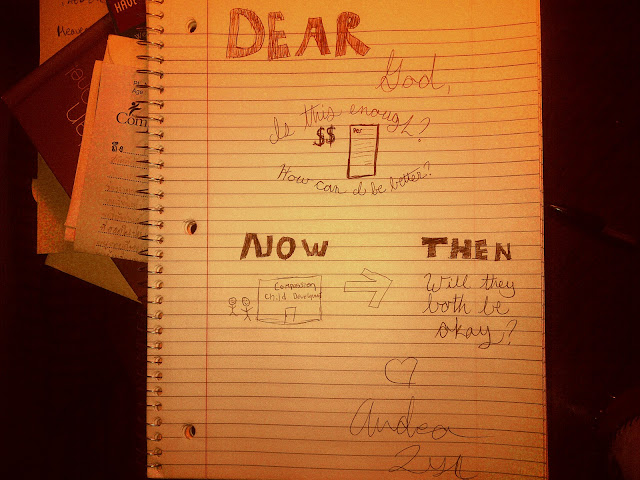 DEAR
God,
Is this enough?
$$
How can I be better?
NOW
THEN
Compassion
Child Development
Will they
both be
okay?
Andrea
HAVE
Com